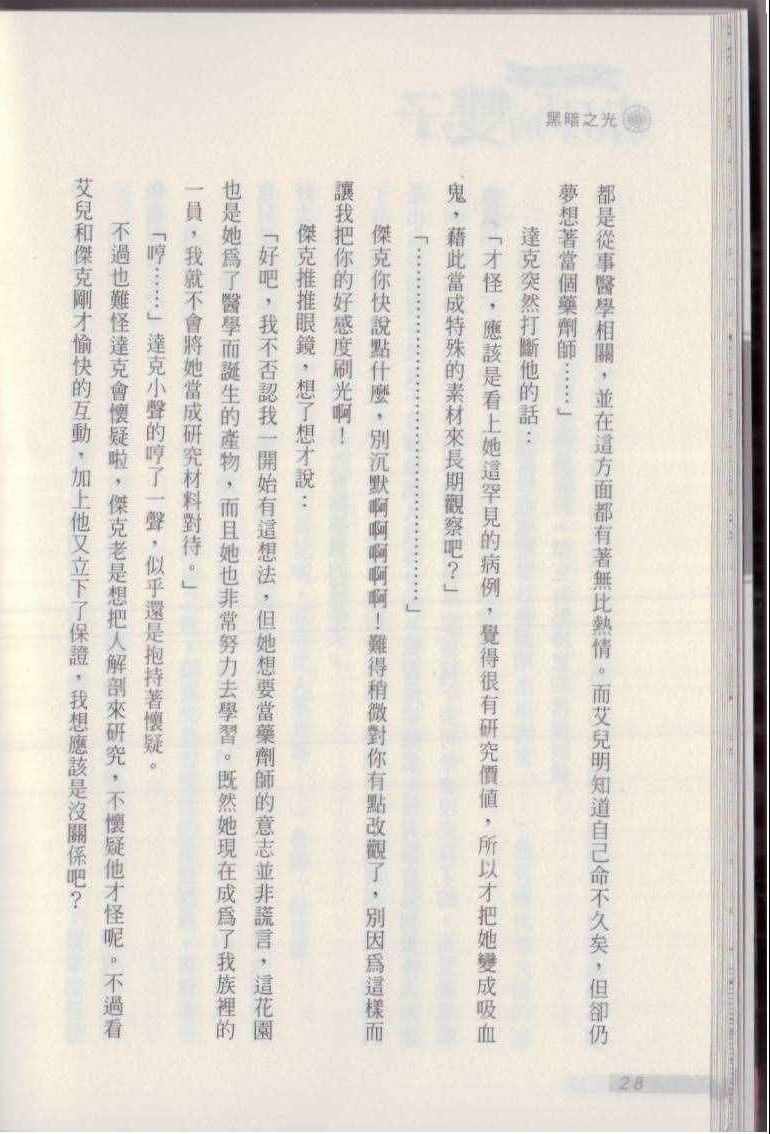 黑暗之光
都是從事醫學相關，並在這方面都有著無比熱情。而艾兒明知道自己命不久矣，但卻仍
夢想著當個藥劑師……」
達克突然打斷他的話：
「才怪，應該是看上她這罕見的病例，覺得很有研究價值，所以才把她變成吸血
鬼，藉此當成特殊的素材來長期觀察吧？」
「………………………………………」
傑克你快說點什麼，別沉默啊啊啊啊啊！難得稍微對你有點改觀了，別因為這樣而
讓我把你的好感度刷光啊！
傑克推推眼鏡，想了想才說：
「好吧，我不否認我一開始有這想法，但她想要當藥劑師的意志並非謊言，這花園
也是她為了醫學而誕生的產物，而且她也非常努力去學習。既然她現在成為了我族裡的
一員，我就不會將她當成研究材料對待。」
「哼……」達克小聲的哼了一聲，似乎還是抱持著懷疑。
不過也難怪達克會懷疑啦，傑克老是想把人解剖來研究，不懷疑他才怪呢。不過看
艾兒和傑克剛才愉快的互動，加上他又立下了保證，我想應該是沒關係吧？
28